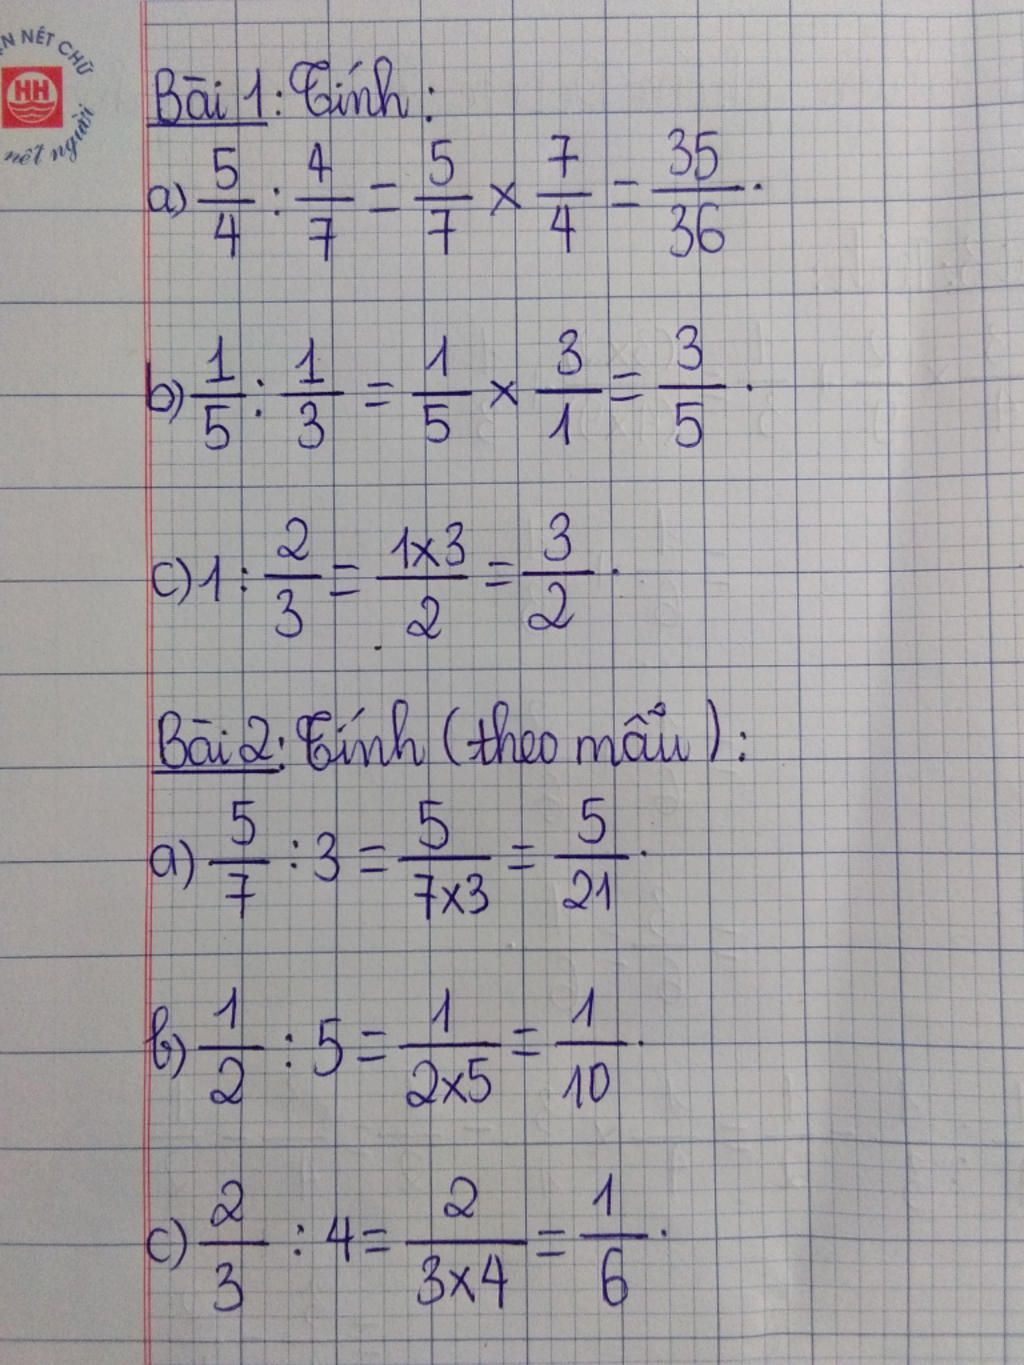 ÈN NÉT CHỮ
HH
nết người
Bài 1: Tính:
a) 5/4 : 4/7 = 5/7 × 7/4 = 35/36.
b) 1/5 : 1/3 = 1/5 × 3/1 = 3/5.
c) 1 : 2/3 = 1×3/2 = 3/2.
Bài 2: Tính (theo mẩu):
a) 5/7 : 3 = 5/7×3 = 5/21.
b) 1/2 : 5 = 1/2×5 = 1/10.
c) 2/3 : 4 = 2/3×4 = 1/6.